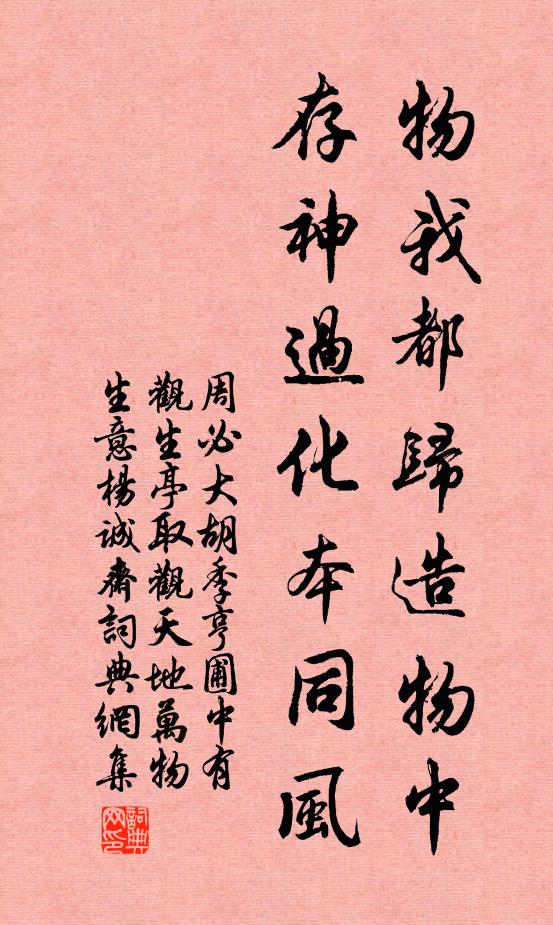 物我都歸造物中
存神過化本同風
周必大胡季亨圃中有
觀生亭取觀天地萬物
生意楊誠齋詞典網集
詞典网印